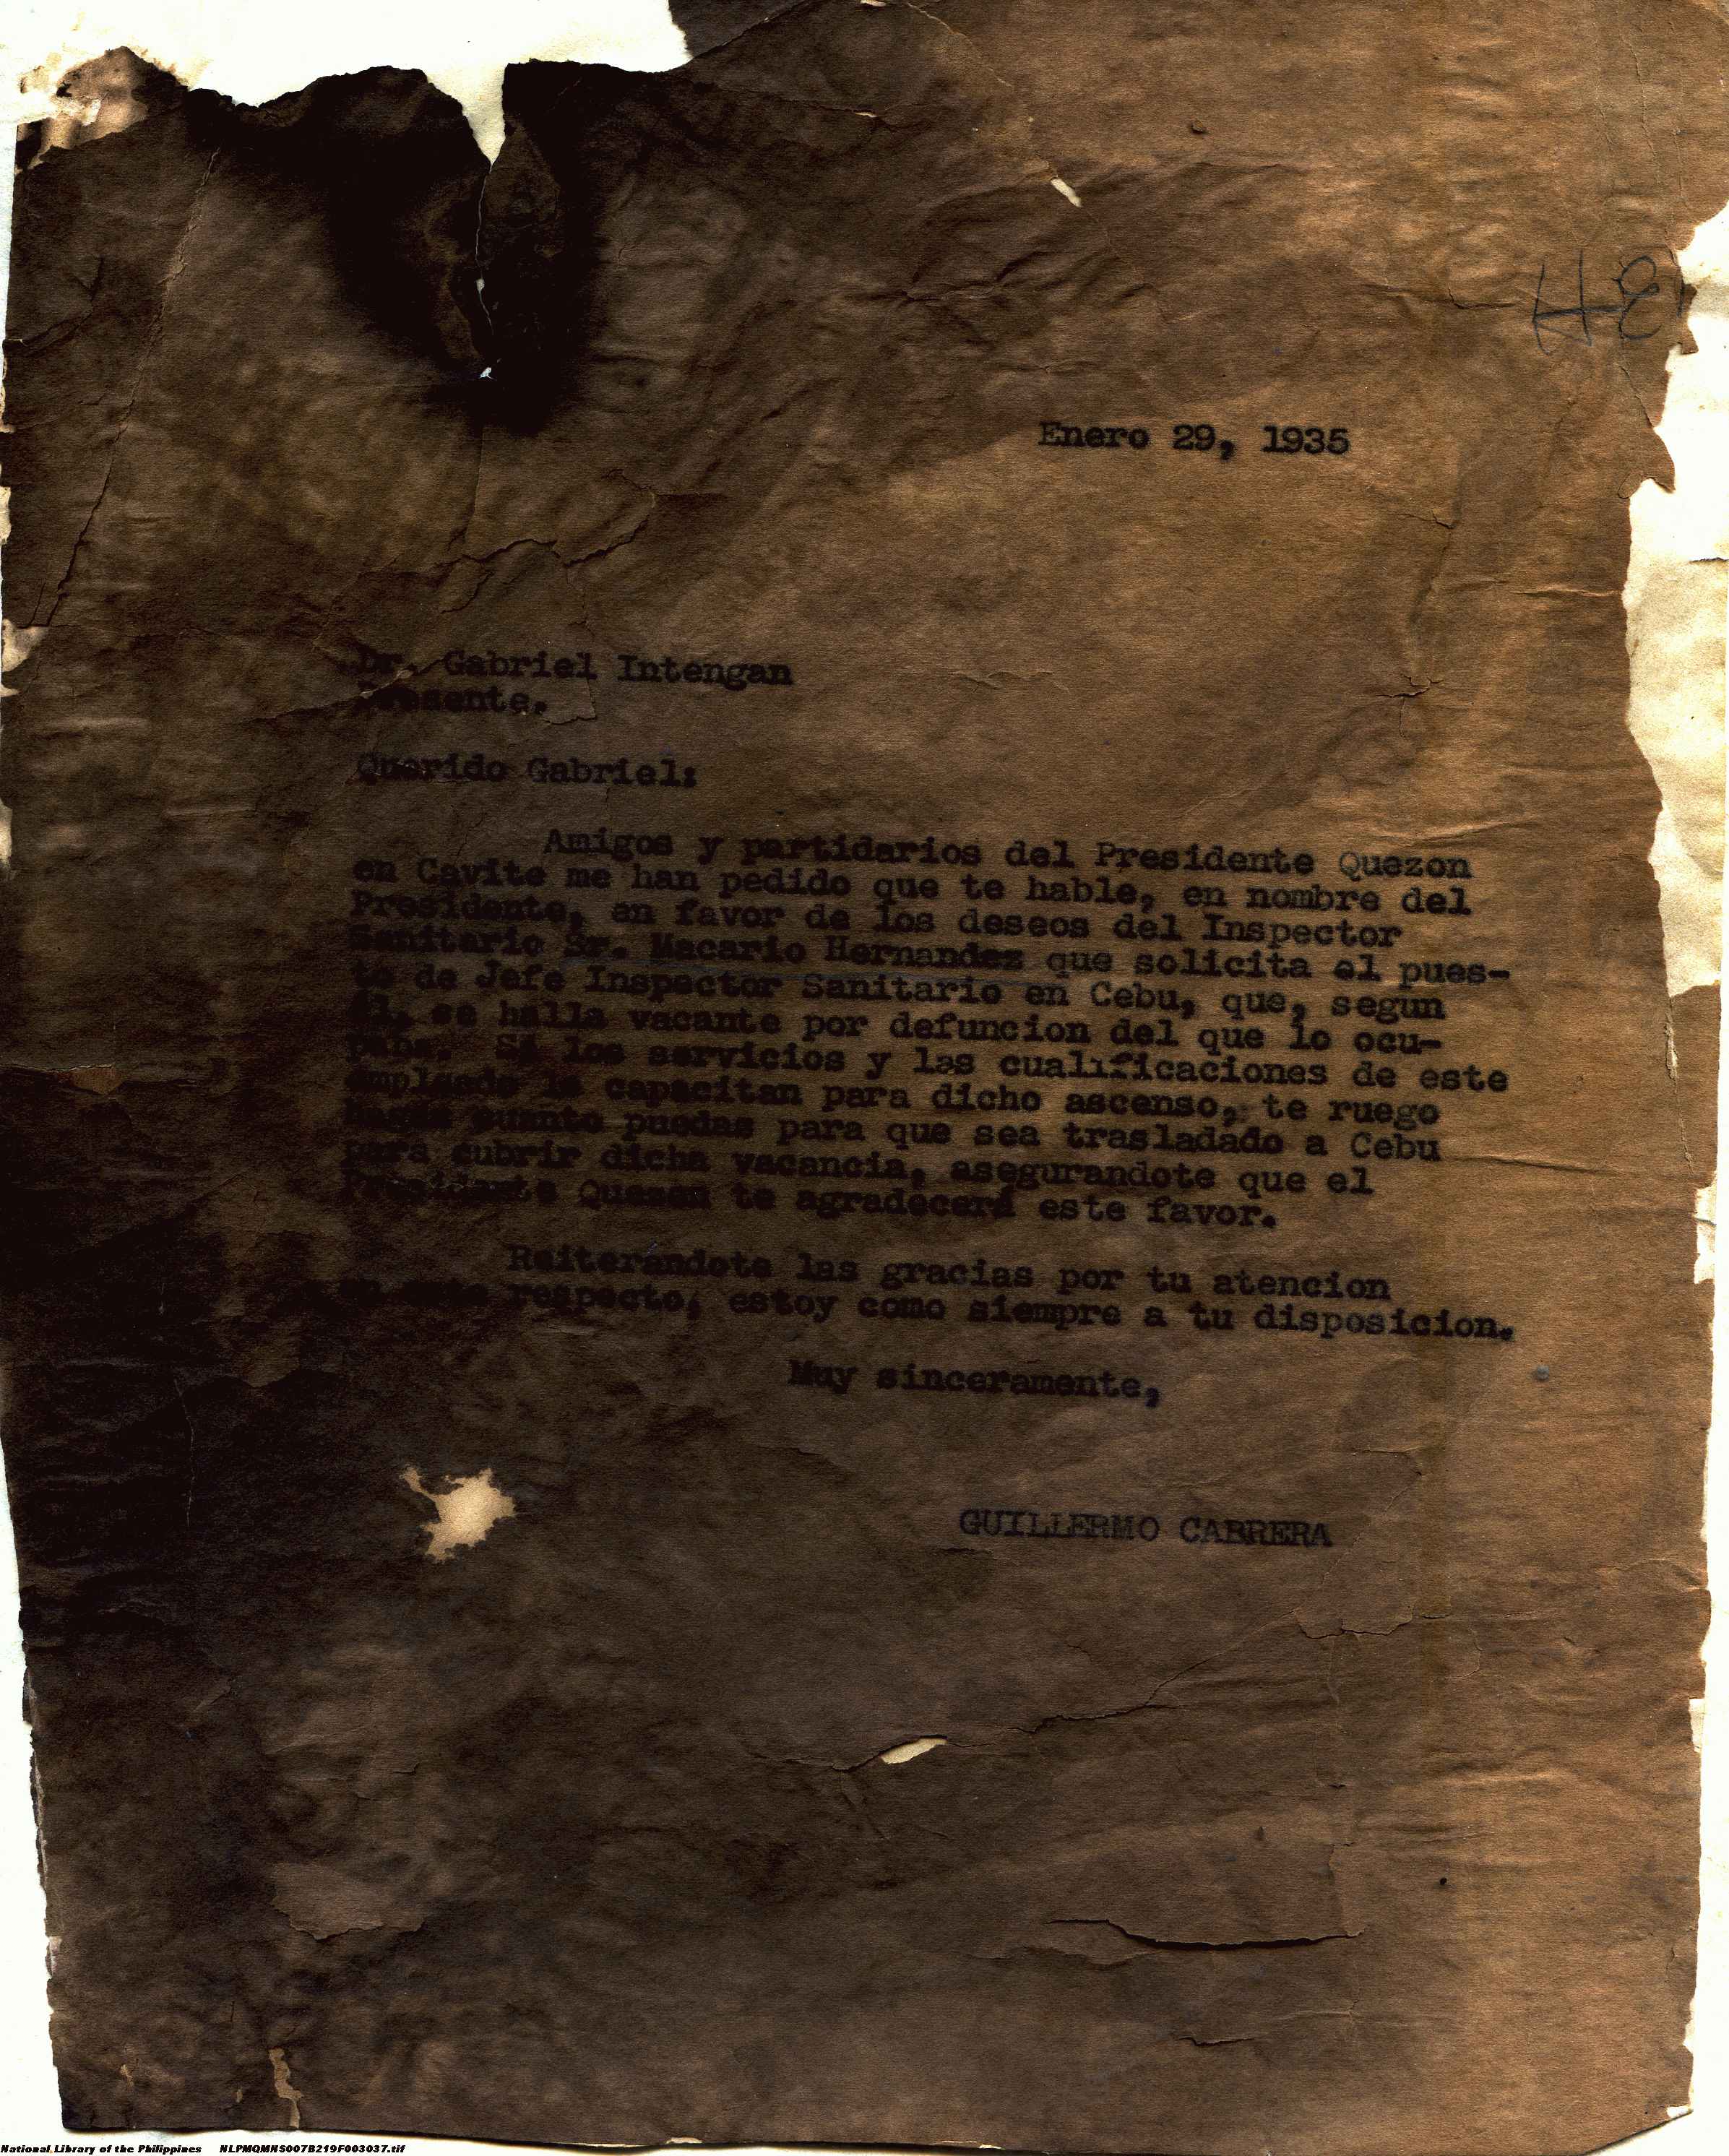 Enero 29, 1935
Dr. Gabriel Intengan
Presente.
Querido Gabriel:
Amigos y partidarios del Presidente Quezon
en Cavite me han pedido que te hable, en nombre del
Presidente, en favor de los deseos del Inspector
Sanitario Sr. Macario Hernandez que solicita el pues-
to de Jefe Inspector Sanitario en Cebu, que, segun
él, se halla vacante por defuncion del que lo ocu-
paba. Si los servicios y las cualificaciones de este
empleado le capacitan para dicho ascenso, te ruego
hagas cuanto puedas para que sea trasladado a Cebu
para cubrir dicha vacancia, asegurandote que el
Presidente Quezon te agradecerá este favor.
Reiterandote las gracias por tu atencion
en este respecto, estoy como siempre a tu disposicion.
Muy sinceramente,
GUILLERMO CABRERA
National Library of the Philippines NLPMQMNS007B219F003037.tif